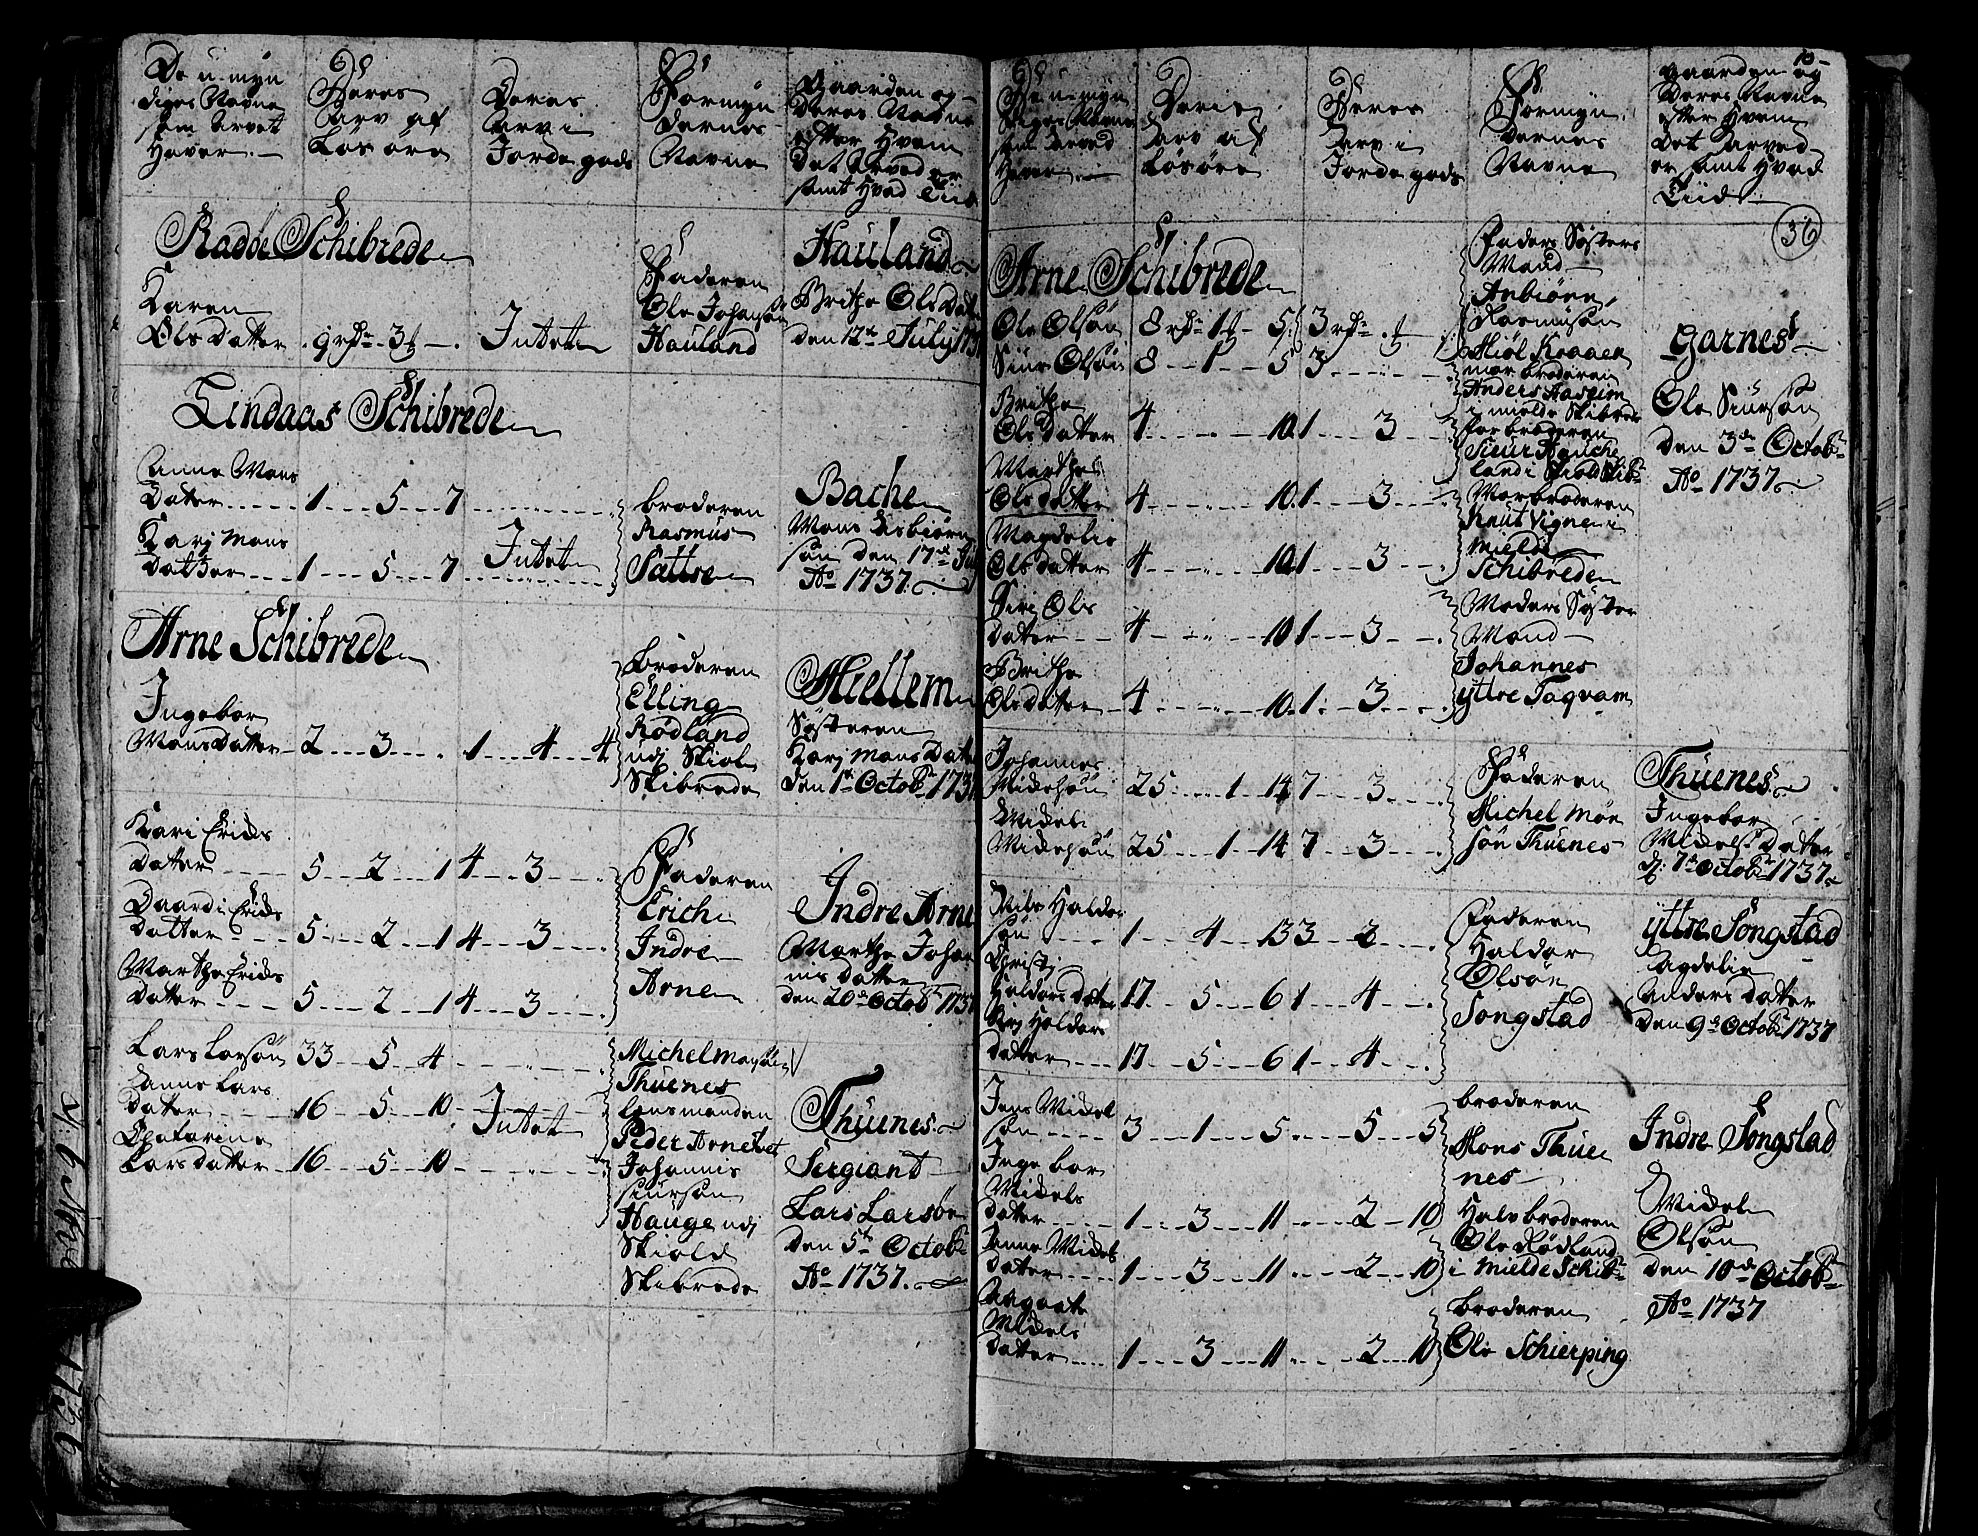 De u-myn
diges Navne
som Arvet
Haver.
Deres
Arv af
Løs øre
Deres
Arv i
Jorde gods
Formyn
dernes
Navne
Gaarden og
Deres Navne
efter Hvem
Det Arved er
samt Hvad Tiid
Radøe Schibrede
Karen
Ols Datter . 9 rdr 3 ß
Intet
Faderen
Ole Johansøn
Hauland
Hauland
Brithe Ols Datter
den 12te July 173
Lindaas Schibrede
Anne Mons
Dater 1 5 7
Karj Mons
Datter 1 5 7
Intet
broderen
Rasmus
Sættre
Bache
Mons Asbiørn
søn den 17de Jul
Ao 1737.
Arne Schibrede
Ingebor
Mons Datter 2 3 . 1 4 4
broderen
Elling
Rødland
udj Skiol
Skibrede
Miellem
Søsteren
Karj Mons Dater
den 1te Octobr 1737
Kari Erichs
Datter 5 2 1 4 3
Daardi Erichs
Datter 5 2 1 4 3
Marthe Erichs
Datter 5 2 1 4 3
Faderen
Erich
Indre
Arne
Indre Arne
Marthe Johan
nis Datter
den 20de Octobr 1737
Lars Larsøn 33 5 4
Anne Lars
Dater 16 5 10
Catarine
Lars datter 16 5 10
Intet
Michel Magsøn
Thuenes
Lensmanden
Peder Arnetvet
Johannis
siursøn
Hauge udj
Skiold
Skibrede
Thuenes
Sergiant
Lars Larsøn
den 5te Octobr
Ao 1737.
10
De u-myn
diges Navne
som Arved
Haver
Deris
Arv af
Løsøre
Deres
Arv i
Jorde gods
Formyn
dernes
Navne
Gaarden og
Deres Navne
efter Hvem
Det Arved
er samt Hvad
Tiid
36
Arne Schibrede
Ole Olsøn 8 rdr 1 ß 5 3 rdr . ß
Siur Olsøn 8 1 5 3
Brithe
Ols Datter 4 10 1 3
Marthe
Ols datter 4 10 1 3
Magdelis
Ols datter 4 10 1 3
Siri Ols
Dater 4 10 1 3
Brithe
Ols dater 4 10 1 3
Faders Søsters
Mand
Anbiørn
Rasmusøn
Miøl Kraaen
mor broderen
Anders Aaseim
i mielde Skibrede
Far broderen
Siur Hauche
land i Skiold Skibr
Mor broderen
Knut Vigne i
Mielde
Schibrede
Moders Søster
Mand
Johannes
yttre Taqvam
Garnes
Ole Siursøn
den 3de Octobr
Ao 1737.
Johannes
Michelsøn 25 1 14 7 3
Michel
Michelsøn 25 1 14 7 3
Faderen
Michel Mon
søn Thuenes
Thuenes
Ingebor
Michels Datter
d. 7de Octobr 1737.
Nils Haldor
søn 1 4 13 3 3
Christj
Haldors dater 17 5 6 1 4
Karj Haldors
dater 17 5 6 1 4
Faderen
Haldor
Olsøn
Songstad
yttre Songstad
Agdelin
Anders dater
den 9de Octobr 1737
Jens Michel
søn 3 1 5 5 5
Ingebor
Michels
dater 1 3 11 2 10
Anne Michels
dater 1 3 11 2 10
Aagaate
Michels
Datter 1 3 11 2 10
broderen
Mons Thue
nes
Halv broderen
Ole Rødland
i Mielde Schibr
broderen
Ole Schierping
Indre Songstad
Michel
Olsøn
den 10de Octobr
Ao 1737